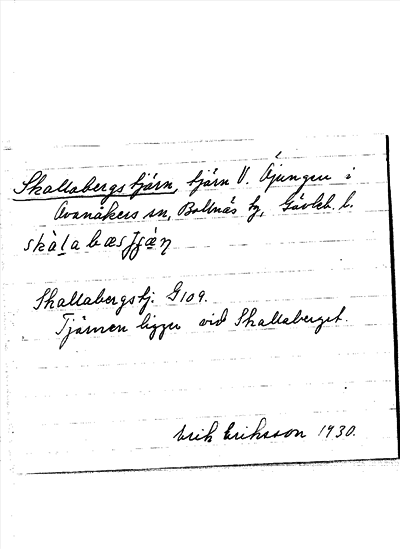 Skallabergstjärn, tjärn V. Öjungen i
Ovanåkers sn, Bollnäs tg, Gävleb. l.
skàl̲a bæsʃjæ̲ṇ
Skallabergstj. G109.
Tjärnen ligger vid Skallaberget.
Erik Eriksson 1930.